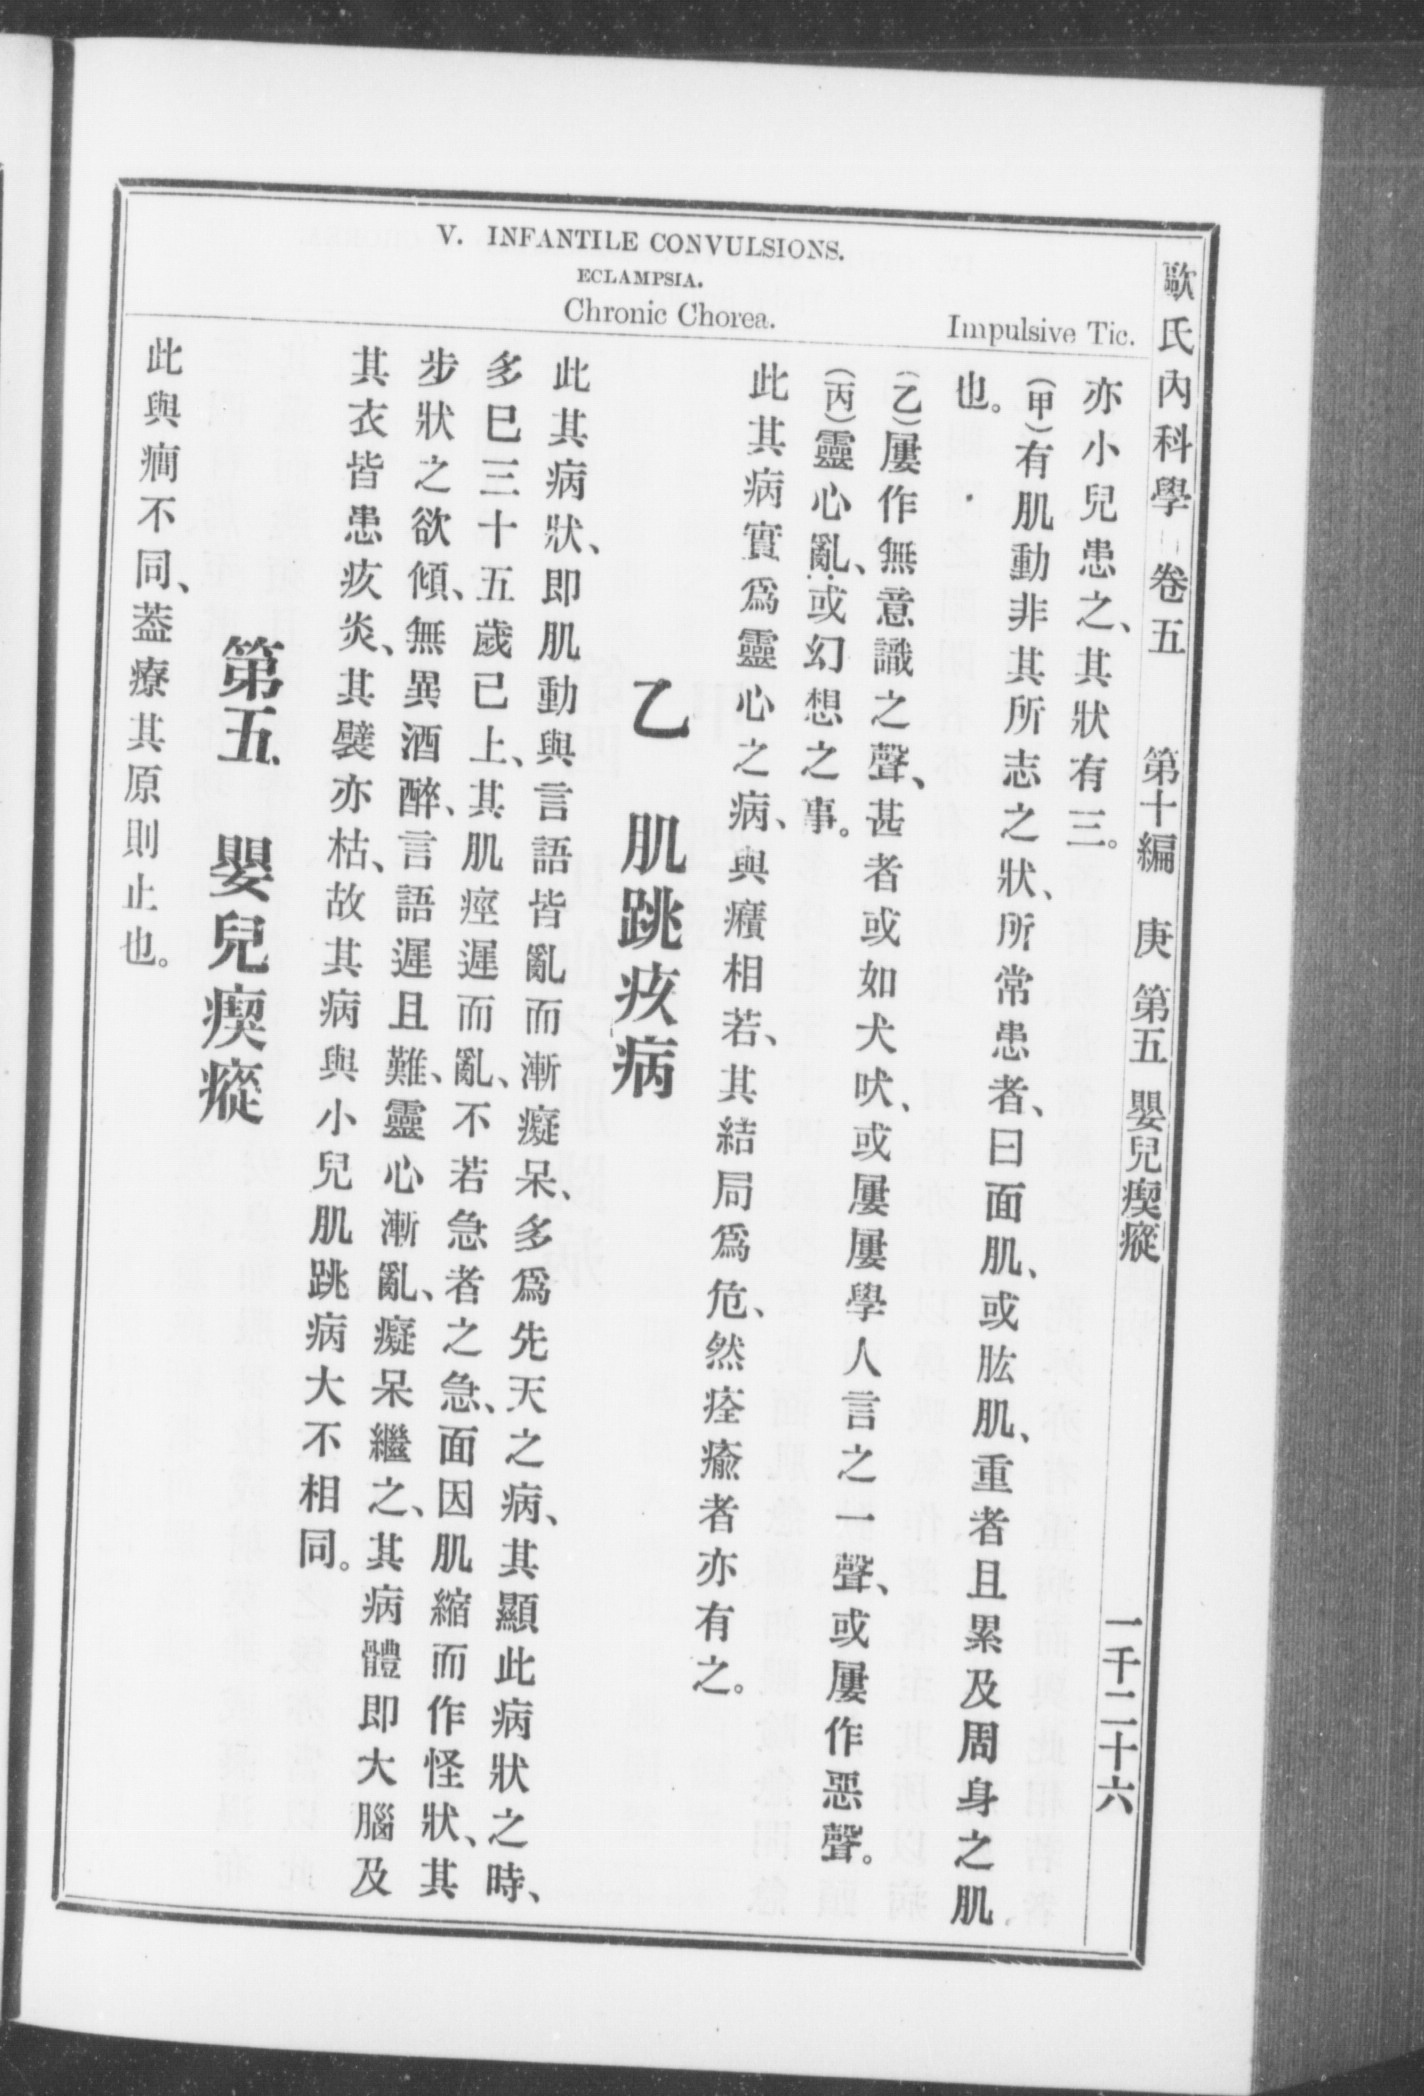 歐氏內科學 卷五 第十編 庚 第五 嬰兒瘈瘲 一千二十六
Impulsive Tic.
V. INFANTILE CONVULSIONS.
ECLAMPSIA.
Chronic Chorea.
亦小兒患之、其狀有三。
(甲)有肌動非其所志之狀、所常患者、曰面肌、或肱肌、重者且累及周身之肌
也。
(乙)屢作無意識之聲、甚者或如犬吠、或屢屢學人言之一聲、或屢作惡聲。
(丙)靈心亂、或幻想之事。
此其病實爲靈心之病、與癪相若、其結局爲危、然痊瘉者亦有之。
乙 肌跳疚病
此其病狀、即肌動與言語皆亂而漸癡呆、多爲先天之病、其顯此病狀之時、
多巳三十五歲已上、其肌痙遲而亂、不若急者之急、面因肌縮而作怪狀、其
步狀之欲傾、無異酒醉、言語遲且難、靈心漸亂、癡呆繼之、其病體即大腦及
其衣皆患疚炎、其襞亦枯、故其病與小兒肌跳病大不相同。
第五 嬰兒瘈瘲
此與癇不同、蓋療其原則止也。